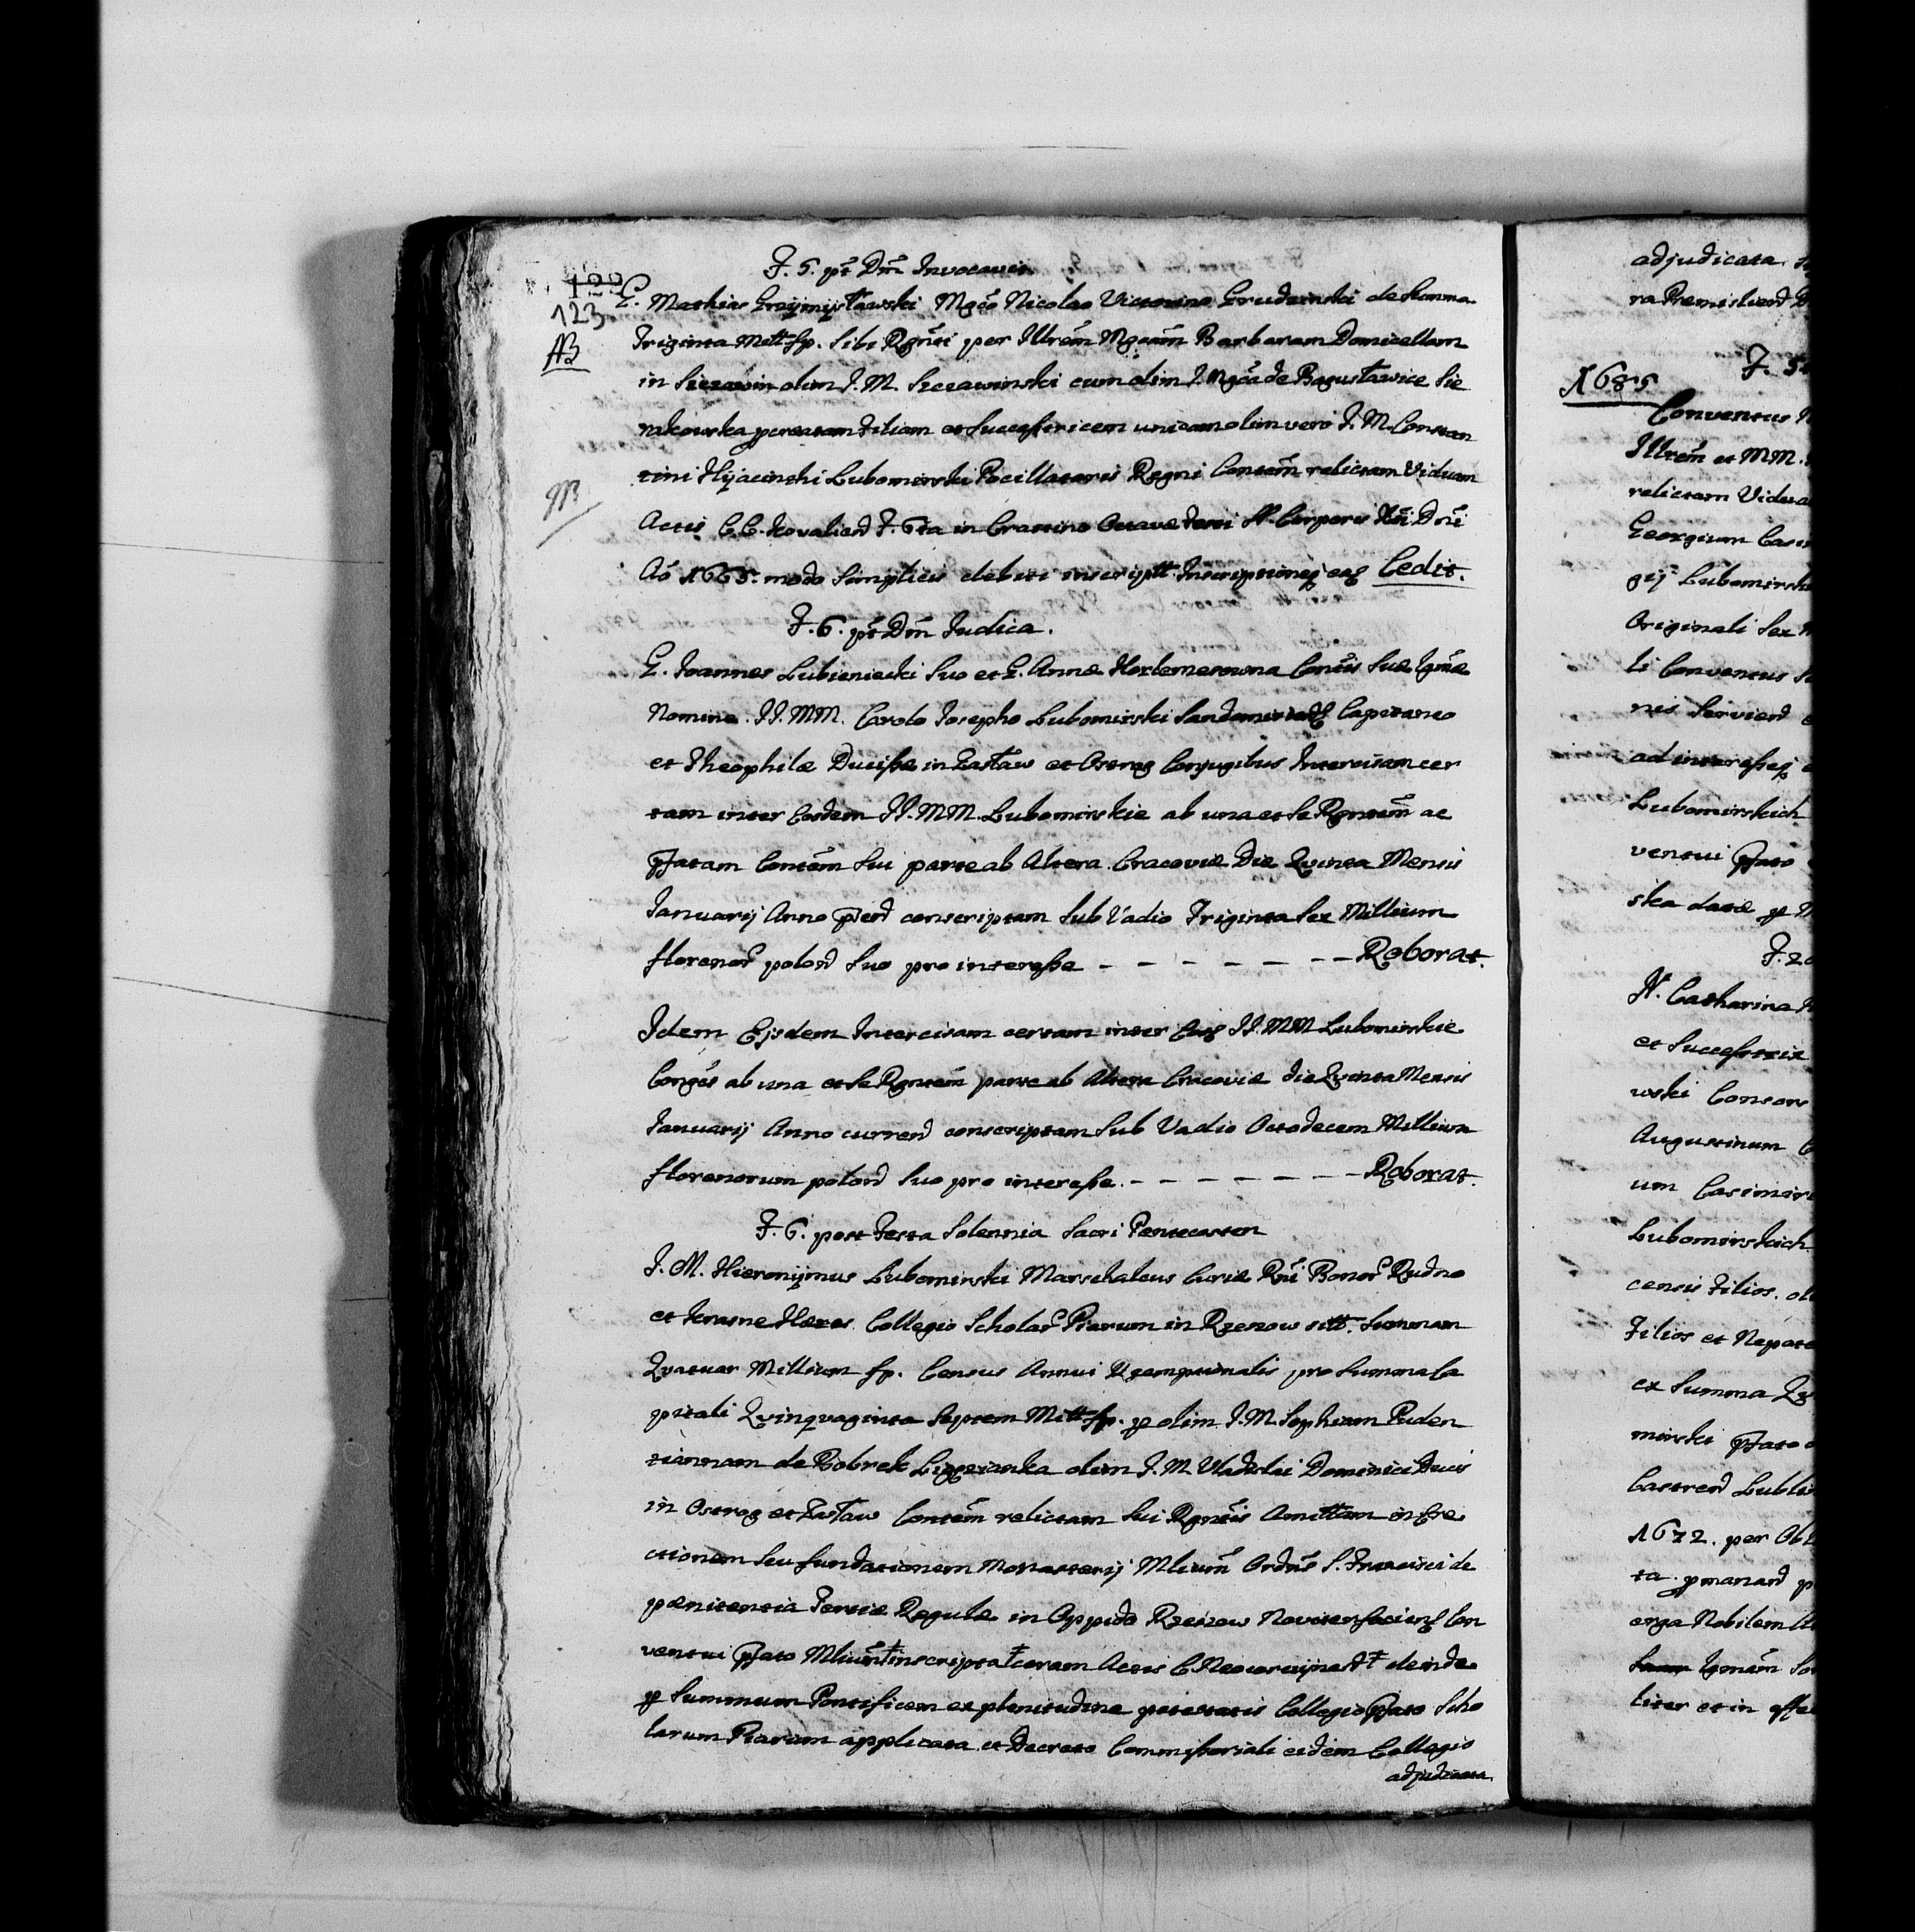 F. 5. pt Dm̃ Invocavit
122
123
AB
G. Mathias Grzymisławski Mgco Nicolao Victorino Grudzinski de summa
Triginta Mill fp. Sibi Rgnti per Illrem Mgcam Barbaram Domicellam
in Szczawin olim J. M. Szczawinski cum olim J. Mgca de Bogusławice Sie
rakowska procreatam Filiam et Successricem unicam olim vero J. M. Constan
tini Hyacinthi Lubomirski Pocillatoris Regni Contem relictam Viduam
M
Actis C. C. Novalien F. 6ta in Crastino Octavæ Festi S. Corporis Xti Dni
Aõ 1665. modo simplicis debiti inscript Inscriptionisq eas Cedit.
F. 6. pt Dm̃ Judica.
G. Joannes Lubieniecki Suo et G. Annæ Contis Suæ Igmæ
Nomine. JJ. MM. Carolo Josepho Lubomirski Sandomirien Capitaneo
et Theophilæ Ducissæ in Zasław et Ostrog Conjugibus Intercisam cer
tam inter Eosdem JJ. MM. Lubomirskie ab una et Se Rgntem ac
pfatam Contem Sui parte ab Altera Cracoviæ Die Qvinta Mensis
Januarij Anno pnd conscriptam Sub Vadio Triginta Sex Millium
florenor polond Suo pro interesse - - - - - - - Roborat.
Idem Eisdem Intercisam certam inter Eosq JJ. MM Lubomirskie
Conges ab una et Se Rgntem parte ab Altera Cracoviæ die Qvinta Mensis
Januarij Anno currend conscriptam Sub Vadio Octodecem Millium
florenorum polond Suo pro interesse. - - - - - - - Roborat.
F. 6. post Festa Solennia Sacri Pentecosten
J. M. Hieronymus Lubomirski Marschalcus Curiæ Rni Bonor Rudno
et Hæres Collegio Scholar Piarum in Rzeszow sitt. Summam
Qvatuor Millium fp. Census Annui Reemptionalis pro Summa Ca
pitali Qvinqvaginta Septem Mill fp. p olim J. M. Sophiam Puden
tiannam de Bobrek Ligęzianka olim J. M. Vladislai Dominici Ducis
in Ostrog et Zasław Contem relictam Sui Rgntis Amittam in Ere
ctionem Seu fundationem Monasterij Mlium Ordnis S. Francisci de
pænitentia Tertiæ Regulæ in Oppido Rzeszow Noviter Con
ventui pfato Mlium inscripta coram Actis C. Neocorcynen deinde
p Summum Pontificem ex plenitudine potestatis Collegio pfato Scho
larum Piarum applicata et Decreto Commissoriali eidem Collegio
adjudicata
adjudicata
ra Premislien
F. 5
1685
Conventus
Illrem et MM.
relictam Vidua
Georgium Casi
gij Lubomirski
Originali Sex
li Conventus
nis Serviend
ad interesseq
Lubomirskich
ventui pfato
ska datæ p
F. 2
N. Catharina
et Successrix
wski Consors
Augustinum
um Casimir
Lubomirskich
censis Filios. oli
Filios et Nepote
ex Summa
mirski pfato
Castren Lublin
1672. per Ob
ta
erga Nobilem
liter et in effe